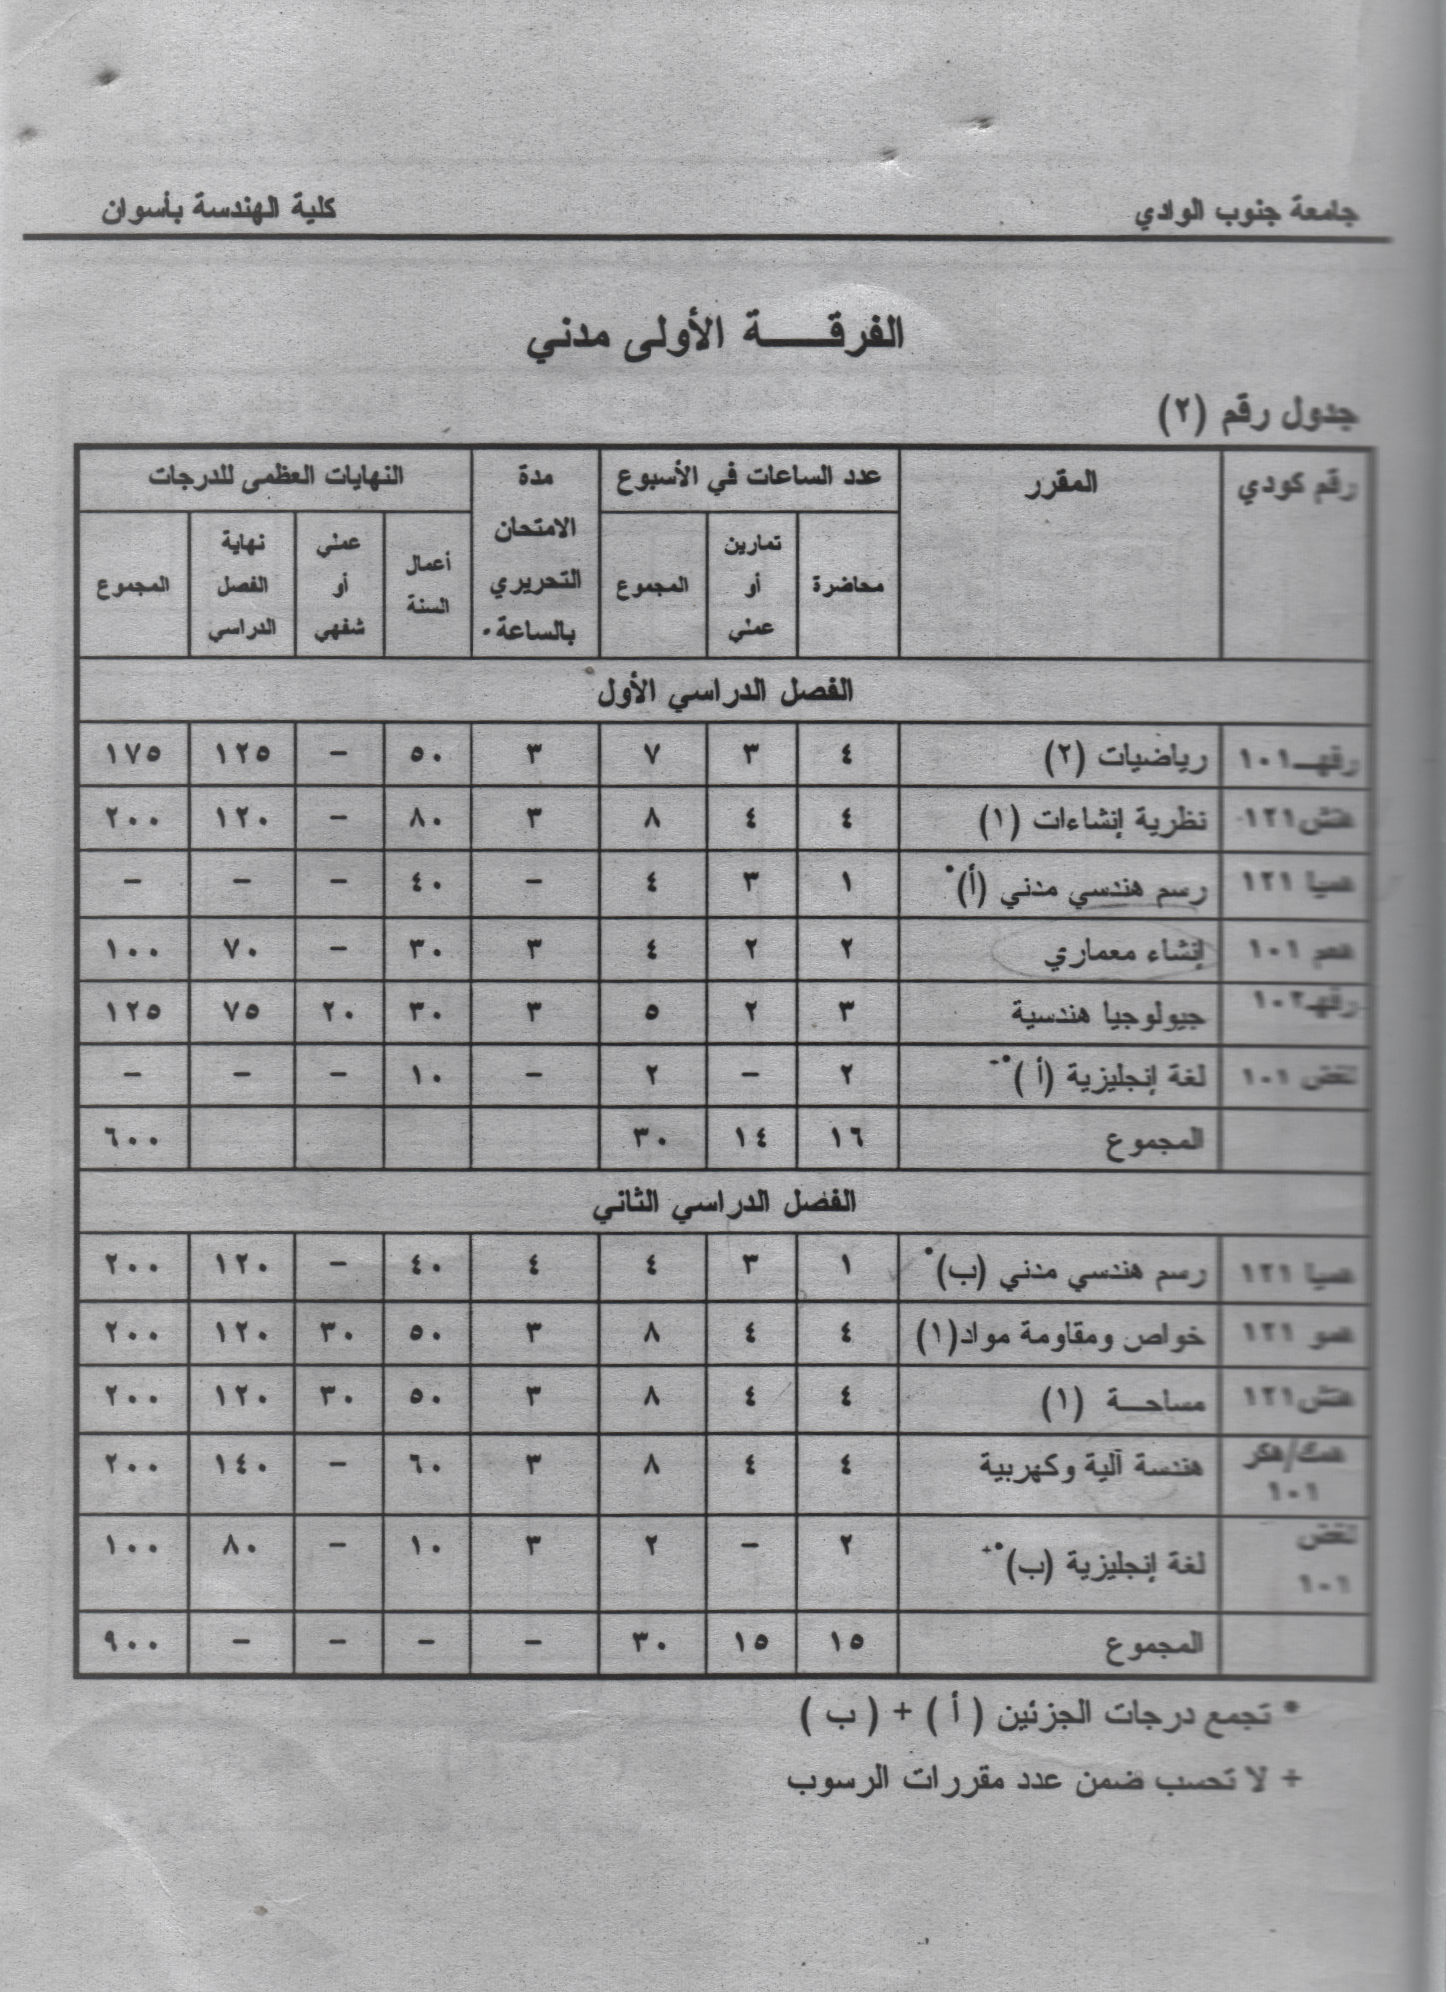 جامعة جنوب الوادي كلية الهندسة بأسوان
الفرقـــــة الأولى مدني
جدول رقم (٢)
رقم كودي المقرر عدد الساعات في الأسبوع مدة الامتحان التحريري بالساعة٠ النهايات العظمى للدرجات
محاضرة تمارين أو عملي المجموع أعمال السنة عملي أو شفهي نهاية الفصل الدراسي المجموع
الفصل الدراسي الأول
رقهـ١٠١ رياضيات (٢) ٤ ٣ ٧ ٣ ٥٠ – ١٢٥ ١٧٥
١٢١ نظرية إنشاءات (١) ٤ ٤ ٨ ٣ ٨٠ – ١٢٠ ٢٠٠
١٢١ رسم هندسي مدني (أ)* ١ ٣ ٤ – ٤٠ – – –
١٠١ إنشاء معماري ٢ ٢ ٤ ٣ ٣٠ – ٧٠ ١٠٠
رقهـ١٠٢ جيولوجيا هندسية ٣ ٢ ٥ ٣ ٣٠ ٢٠ ٧٥ ١٢٥
١٠١ لغة إنجليزية (أ )*+ ٢ – ٢ – ١٠ – – –
المجموع ١٦ ١٤ ٣٠ ٦٠٠
الفصل الدراسي الثاني
١٢١ رسم هندسي مدني (ب)* ١ ٣ ٤ ٤ ٤٠ – ١٢٠ ٢٠٠
١٢١ خواص ومقاومة مواد(١) ٤ ٤ ٨ ٣ ٥٠ ٣٠ ١٢٠ ٢٠٠
١٢١ مساحـــة (١) ٤ ٤ ٨ ٣ ٥٠ ٣٠ ١٢٠ ٢٠٠
همك/هكر ١٠١ هندسة آلية وكهربية ٤ ٤ ٨ ٣ ٦٠ – ١٤٠ ٢٠٠
١٠١ لغة إنجليزية (ب)*+ ٢ – ٢ ٣ ١٠ – ٨٠ ١٠٠
المجموع ١٥ ١٥ ٣٠ – – – – ٩٠٠
* تجمع درجات الجزئين ( أ ) + ( ب )
+ لا تحسب ضمن عدد مقررات الرسوب